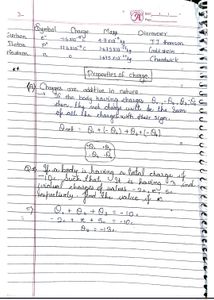 2
Symbol Charge Mass Discoverer
Electron e⁻ -1.6×10⁻¹⁹C J.J thomson
Proton Goldstein
Neutron n 0 Chadwick
Properties of charge
① Charges are additive in nature
If the body having charges Q₁, Q₂, Q₃, Q₄
then, the net charge will be the sum
of all the charges with their sign.
Qnet = Q₁ + (-Q₂) + Q₃ + (-Q₄)
If a body is having a total charge of
-10c such that it is having 3
charges of values -2c, x, 5c
respectively. find the value of x
Q₁ + Q₂ + Q₃ = -10c
-2c + x + 5c = -10c
Q₂ = -13c